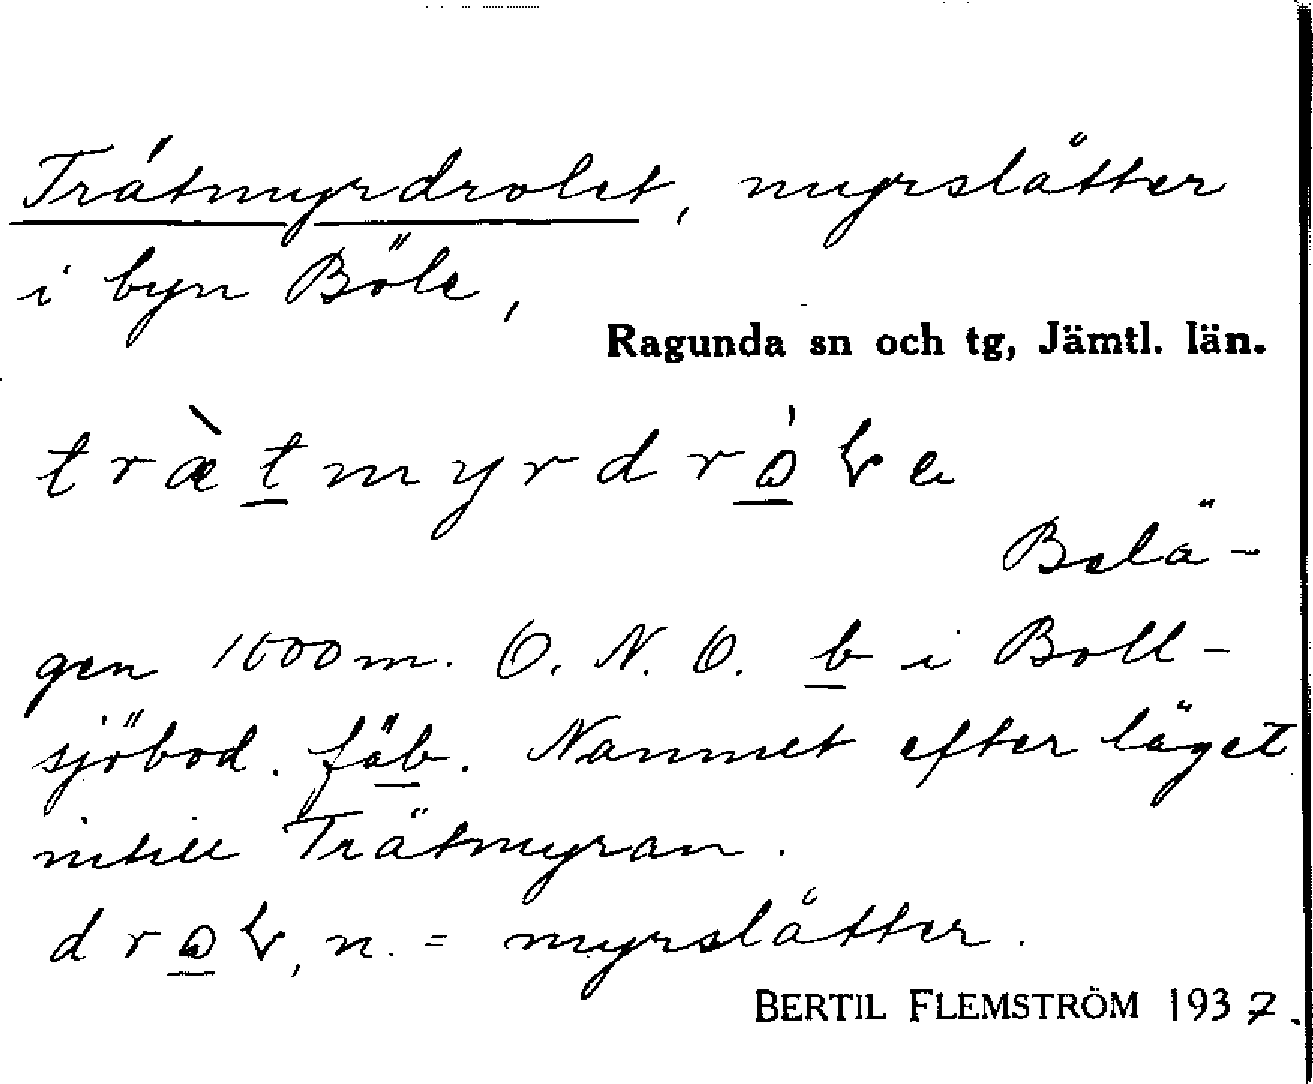 Trätmyrdrolet, myrslåtter
i byn Böle,
Ragunda sn och tg, Jämtl. län.
Belä-
gen 1500 m. O. N. O. b i Boll-
sjöbod. fäb. Namnet efter läget
intill Trätmyran.
n. = myrslåtter.
BERTIL FLEMSTRÖM 1937.